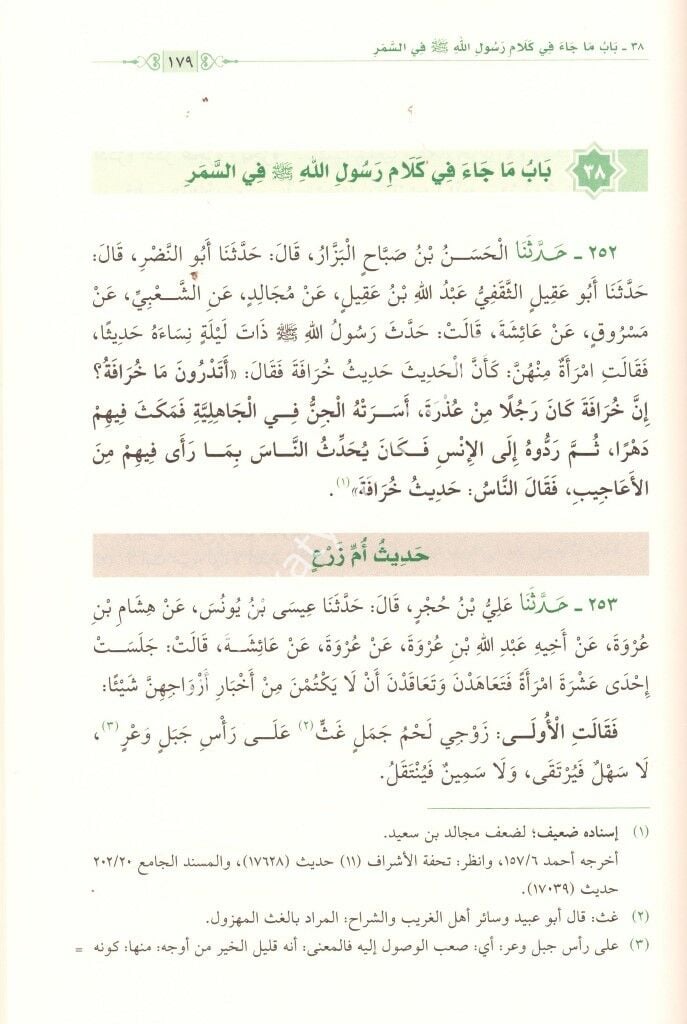 ٣٨ ـ بَابُ مَا جَاءَ فِي كَلَامِ رَسُولِ اللهِ ﷺ فِي السَّمَرِ
١٧٩
٣٨ بَابُ مَا جَاءَ فِي كَلَامِ رَسُولِ اللهِ ﷺ فِي السَّمَرِ
٢٥٢ ـ حَدَّثَنَا الْحَسَنُ بْنُ صَبَّاحٍ الْبَزَّارُ، قَالَ: حَدَّثَنَا أَبُو النَّضْرِ، قَالَ:
حَدَّثَنَا أَبُو عَقِيلٍ الثَّقَفِيُّ عَبْدُ اللهِ بْنُ عَقِيلٍ، عَنْ مُجَالِدٍ، عَنِ الشَّعْبِيِّ، عَنْ
مَسْرُوقٍ، عَنْ عَائِشَةَ، قَالَتْ: حَدَّثَ رَسُولُ اللهِ ﷺ ذَاتَ لَيْلَةٍ نِسَاءَهُ حَدِيثًا،
فَقَالَتِ امْرَأَةٌ مِنْهُنَّ: كَأَنَّ الْحَدِيثَ حَدِيثُ خُرَافَةَ فَقَالَ: «أَتَدْرُونَ مَا خُرَافَةُ؟
إِنَّ خُرَافَةَ كَانَ رَجُلًا مِنْ عُذْرَةَ، أَسَرَتْهُ الْجِنُّ فِي الْجَاهِلِيَّةِ فَمَكَثَ فِيهِمْ
دَهْرًا، ثُمَّ رَدُّوهُ إِلَى الإِنْسِ فَكَانَ يُحَدِّثُ النَّاسَ بِمَا رَأَى فِيهِمْ مِنَ
الأَعَاجِيبِ، فَقَالَ النَّاسُ: حَدِيثُ خُرَافَةَ»(١).
حَدِيثُ أُمِّ زَرْعٍ
٢٥٣ ـ حَدَّثَنَا عَلِيُّ بْنُ حُجْرٍ، قَالَ: حَدَّثَنَا عِيسَى بْنُ يُونُسَ، عَنْ هِشَامِ بْنِ
عُرْوَةَ، عَنْ أَخِيهِ عَبْدِ اللهِ بْنِ عُرْوَةَ، عَنْ عُرْوَةَ، عَنْ عَائِشَةَ، قَالَتْ: جَلَسَتْ
إِحْدَى عَشْرَةَ امْرَأَةً فَتَعَاهَدْنَ وَتَعَاقَدْنَ أَنْ لَا يَكْتُمْنَ مِنْ أَخْبَارِ أَزْوَاجِهِنَّ شَيْئًا:
فَقَالَتِ الْأُولَى: زَوْجِي لَحْمُ جَمَلٍ غَثٍّ(٢) عَلَى رَأْسِ جَبَلٍ وَعْرٍ(٣)،
لَا سَهْلٌ فَيُرْتَقَى، وَلَا سَمِينٌ فَيُنْتَقَلُ.
(١) إسناده ضعيف؛ لضعف مجالد بن سعيد.
أخرجه أحمد ١٥٧/٦، وانظر: تحفة الأشراف (١١) حديث (١٧٦٢٨)، والمسند الجامع ٢٠٢/٢٠
حديث (١٧٠٣٩).
(٢) غث: قال أبو عبيد وسائر أهل الغريب والشراح: المراد بالغث المهزول.
(٣) على رأس جبل وعر: أي: صعب الوصول إليه فالمعنى: أنه قليل الخير من أوجه: منها: كونه =